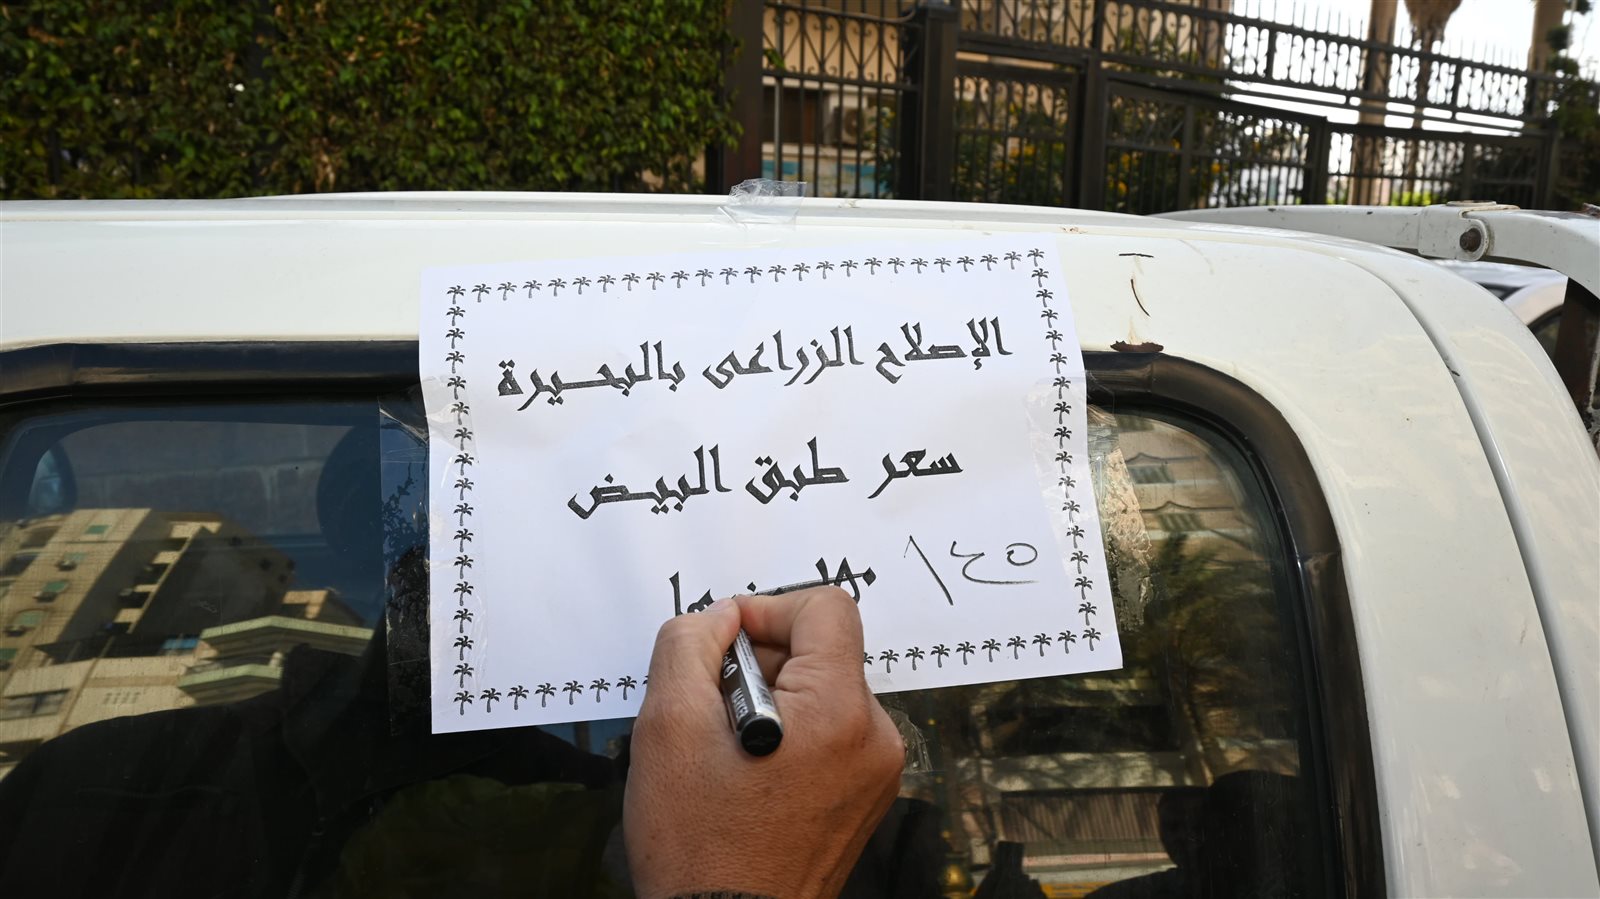 الإصلاح الزراعى بالبحيرة
سعر طبق البيض
١٤٥
MARKER